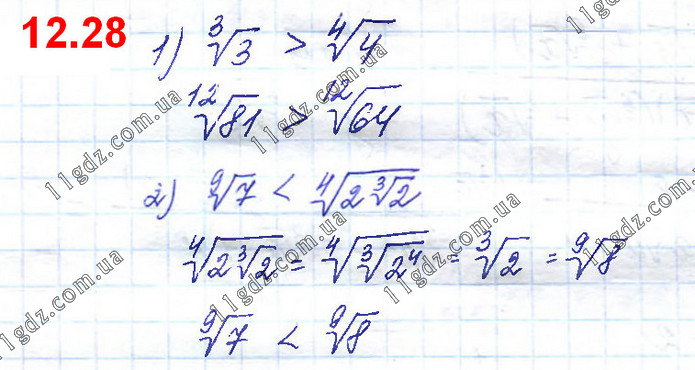 12.28
1) ∛3 > ∜4
¹²√81 > ¹²√64
2) ⁹√7 < ∜(2∛2)
∜(2∛2) = ∜(∛(2⁴)) = ∛2 = ⁹√8
⁹√7 < ⁹√8
11gdz.com.ua
11gdz.com.ua
11gdz.com.ua
11gdz.com.ua
11gdz.com.ua
11gdz.com.ua